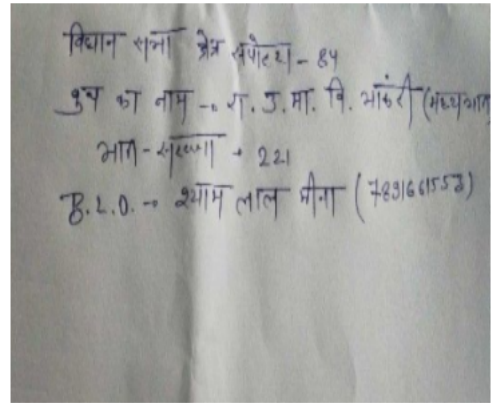 विधान सभा क्षेत्र सपोटरा - 84
बुथ का नाम → रा. उ. मा. वि. भांकरी (मध्यभाग)
भाग - संख्या → 221
B.L.O. → श्याम लाल मीना (7891661553)